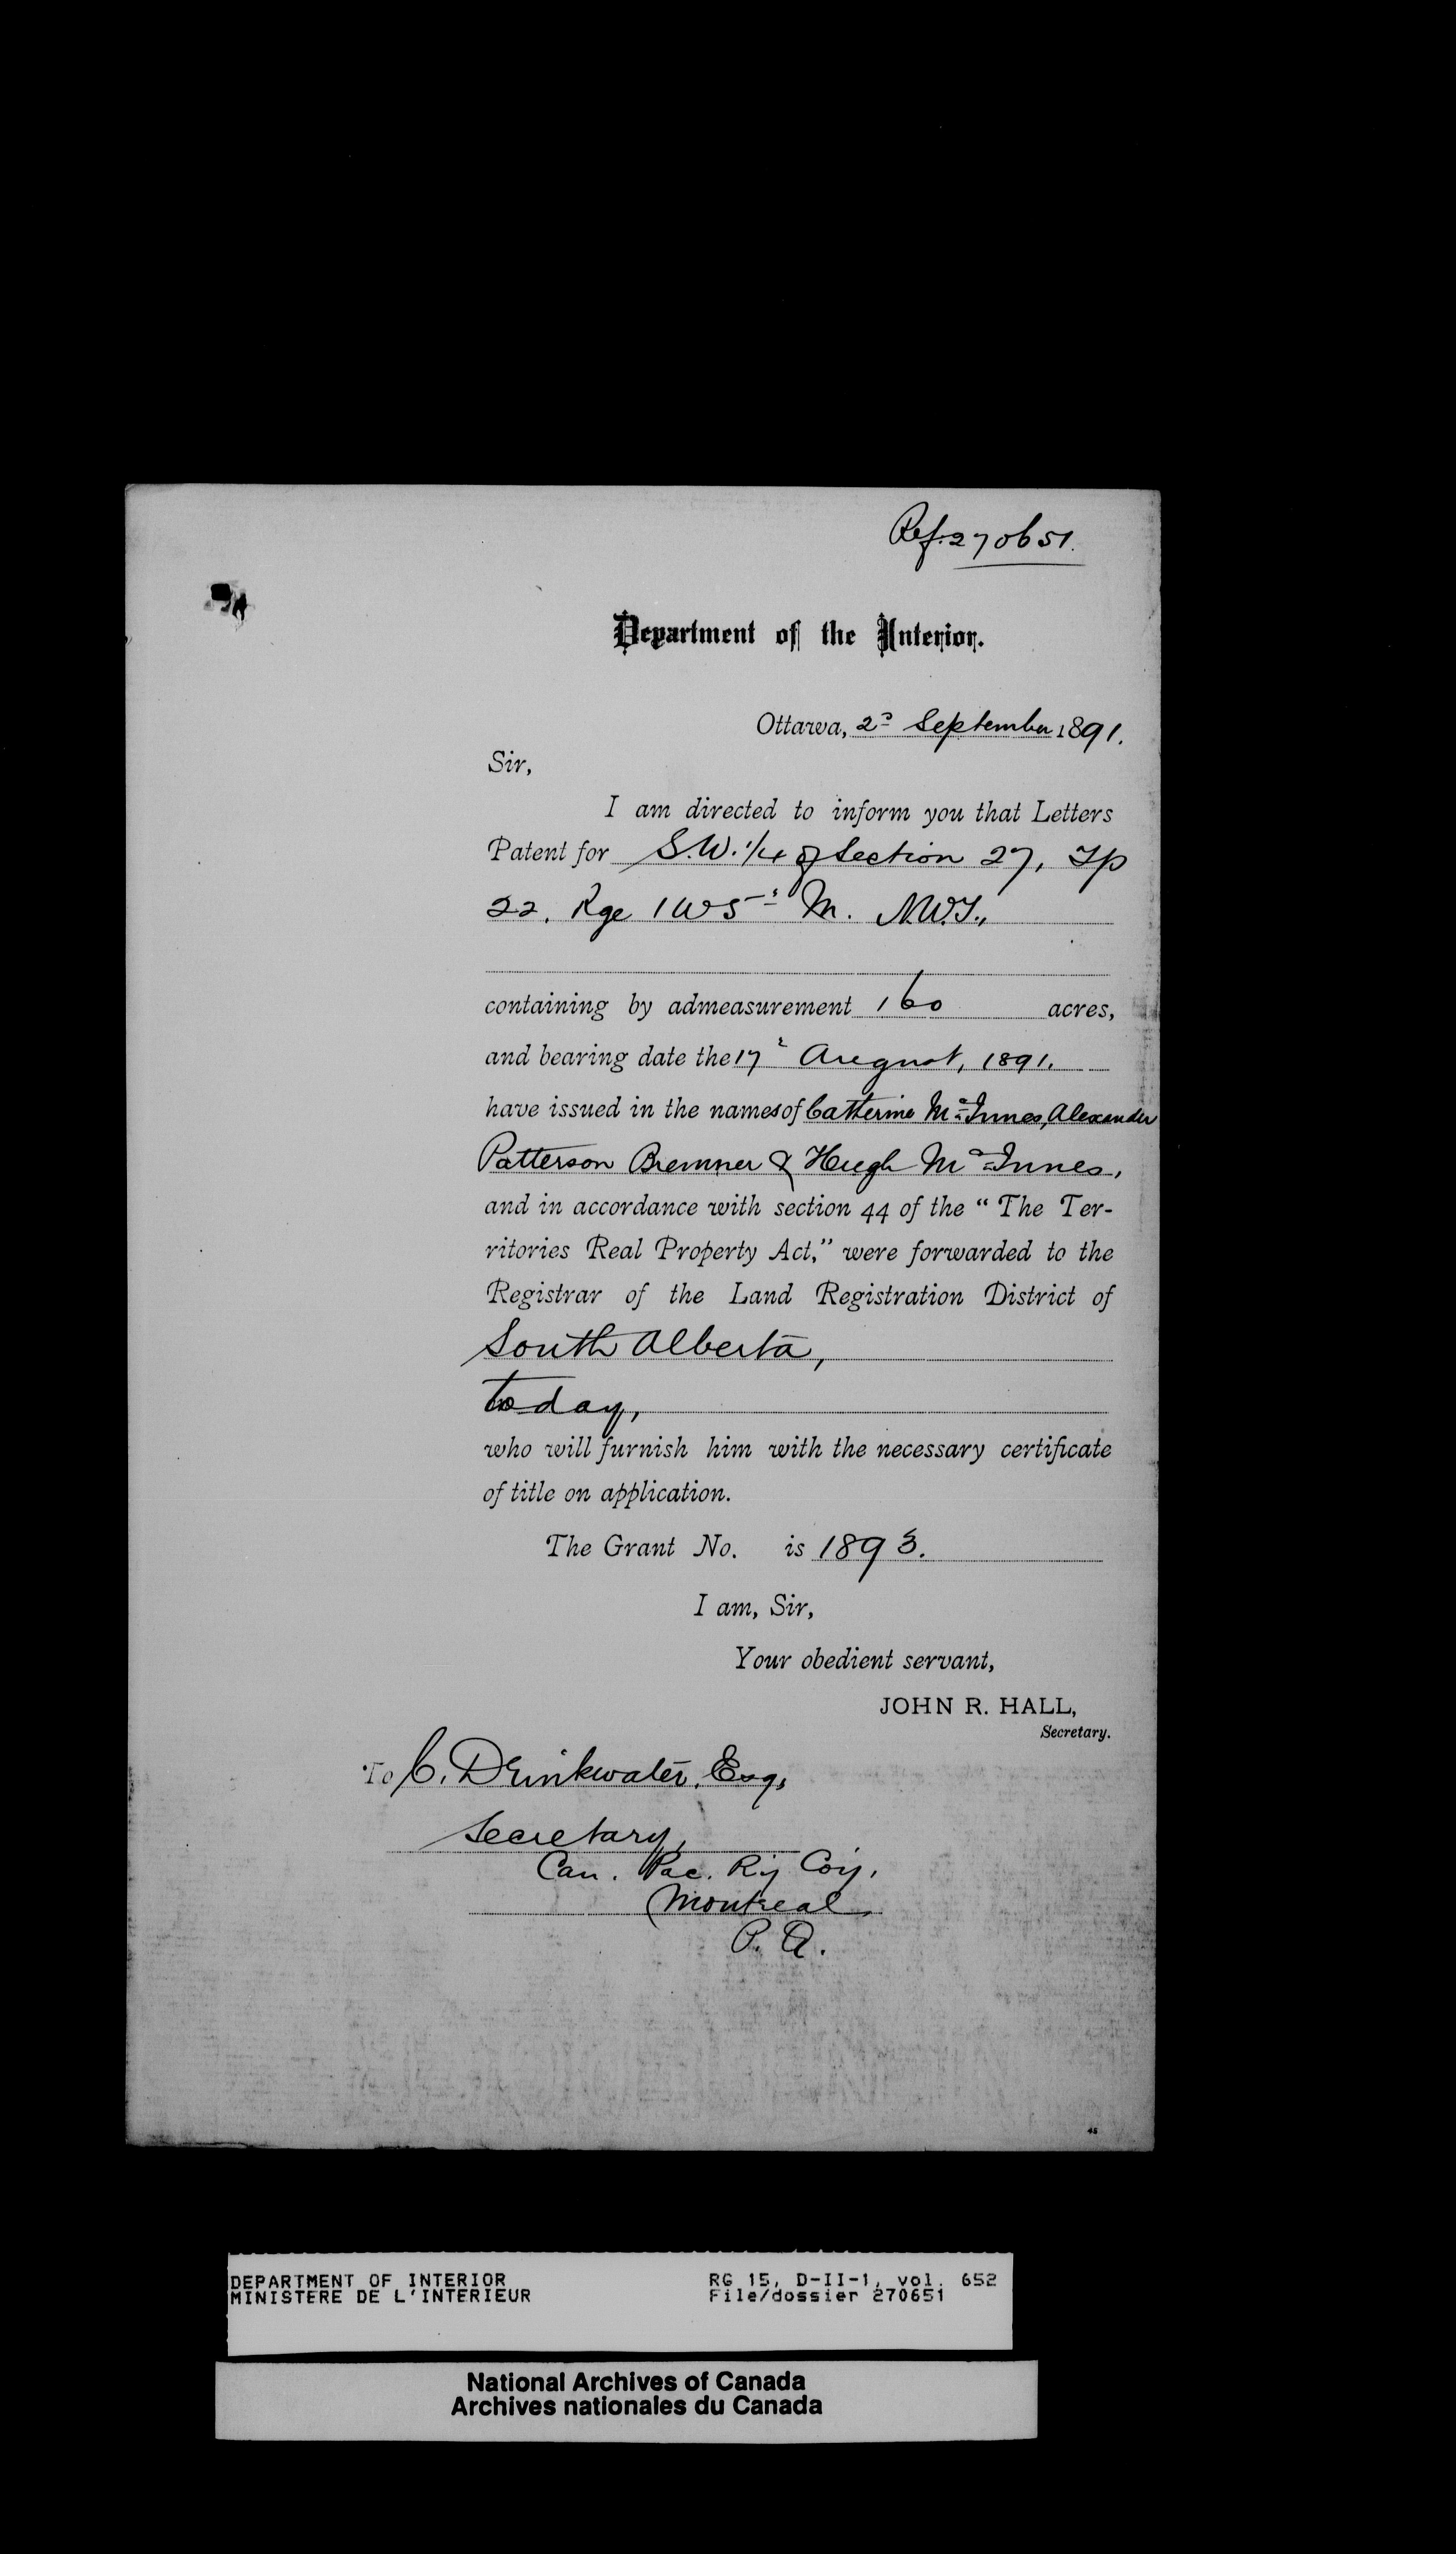 Ref. 270651.
Department of the Interior.
Ottawa, 2nd September 1891.
Sir,
I am directed to inform you that Letters
Patent for S.W. 1/4 of Section 27, Tp
22, Rge 1 W 5th M. N.W.T.,
containing by admeasurement 160 acres,
and bearing date the 17th August, 1891.
have issued in the names of Catherine McInnes, Alexander
Patterson Bremner & Hugh McInnes,
and in accordance with section 44 of the “ The Ter-
ritories Real Property Act,” were forwarded to the
Registrar of the Land Registration District of
South Alberta,
today,
who will furnish him with the necessary certificate
of title on application.
The Grant No. is 1893.
I am, Sir,
Your obedient servant,
JOHN R. HALL,
Secretary.
To C. Drinkwater, Esq,
Secretary,
Can. Pac. Ry Coy,
Montreal
P.Q.
45
DEPARTMENT OF INTERIOR RG 15, D-II-1, vol. 652
MINISTERE DE L'INTERIEUR File/dossier 270651
National Archives of Canada
Archives nationales du Canada